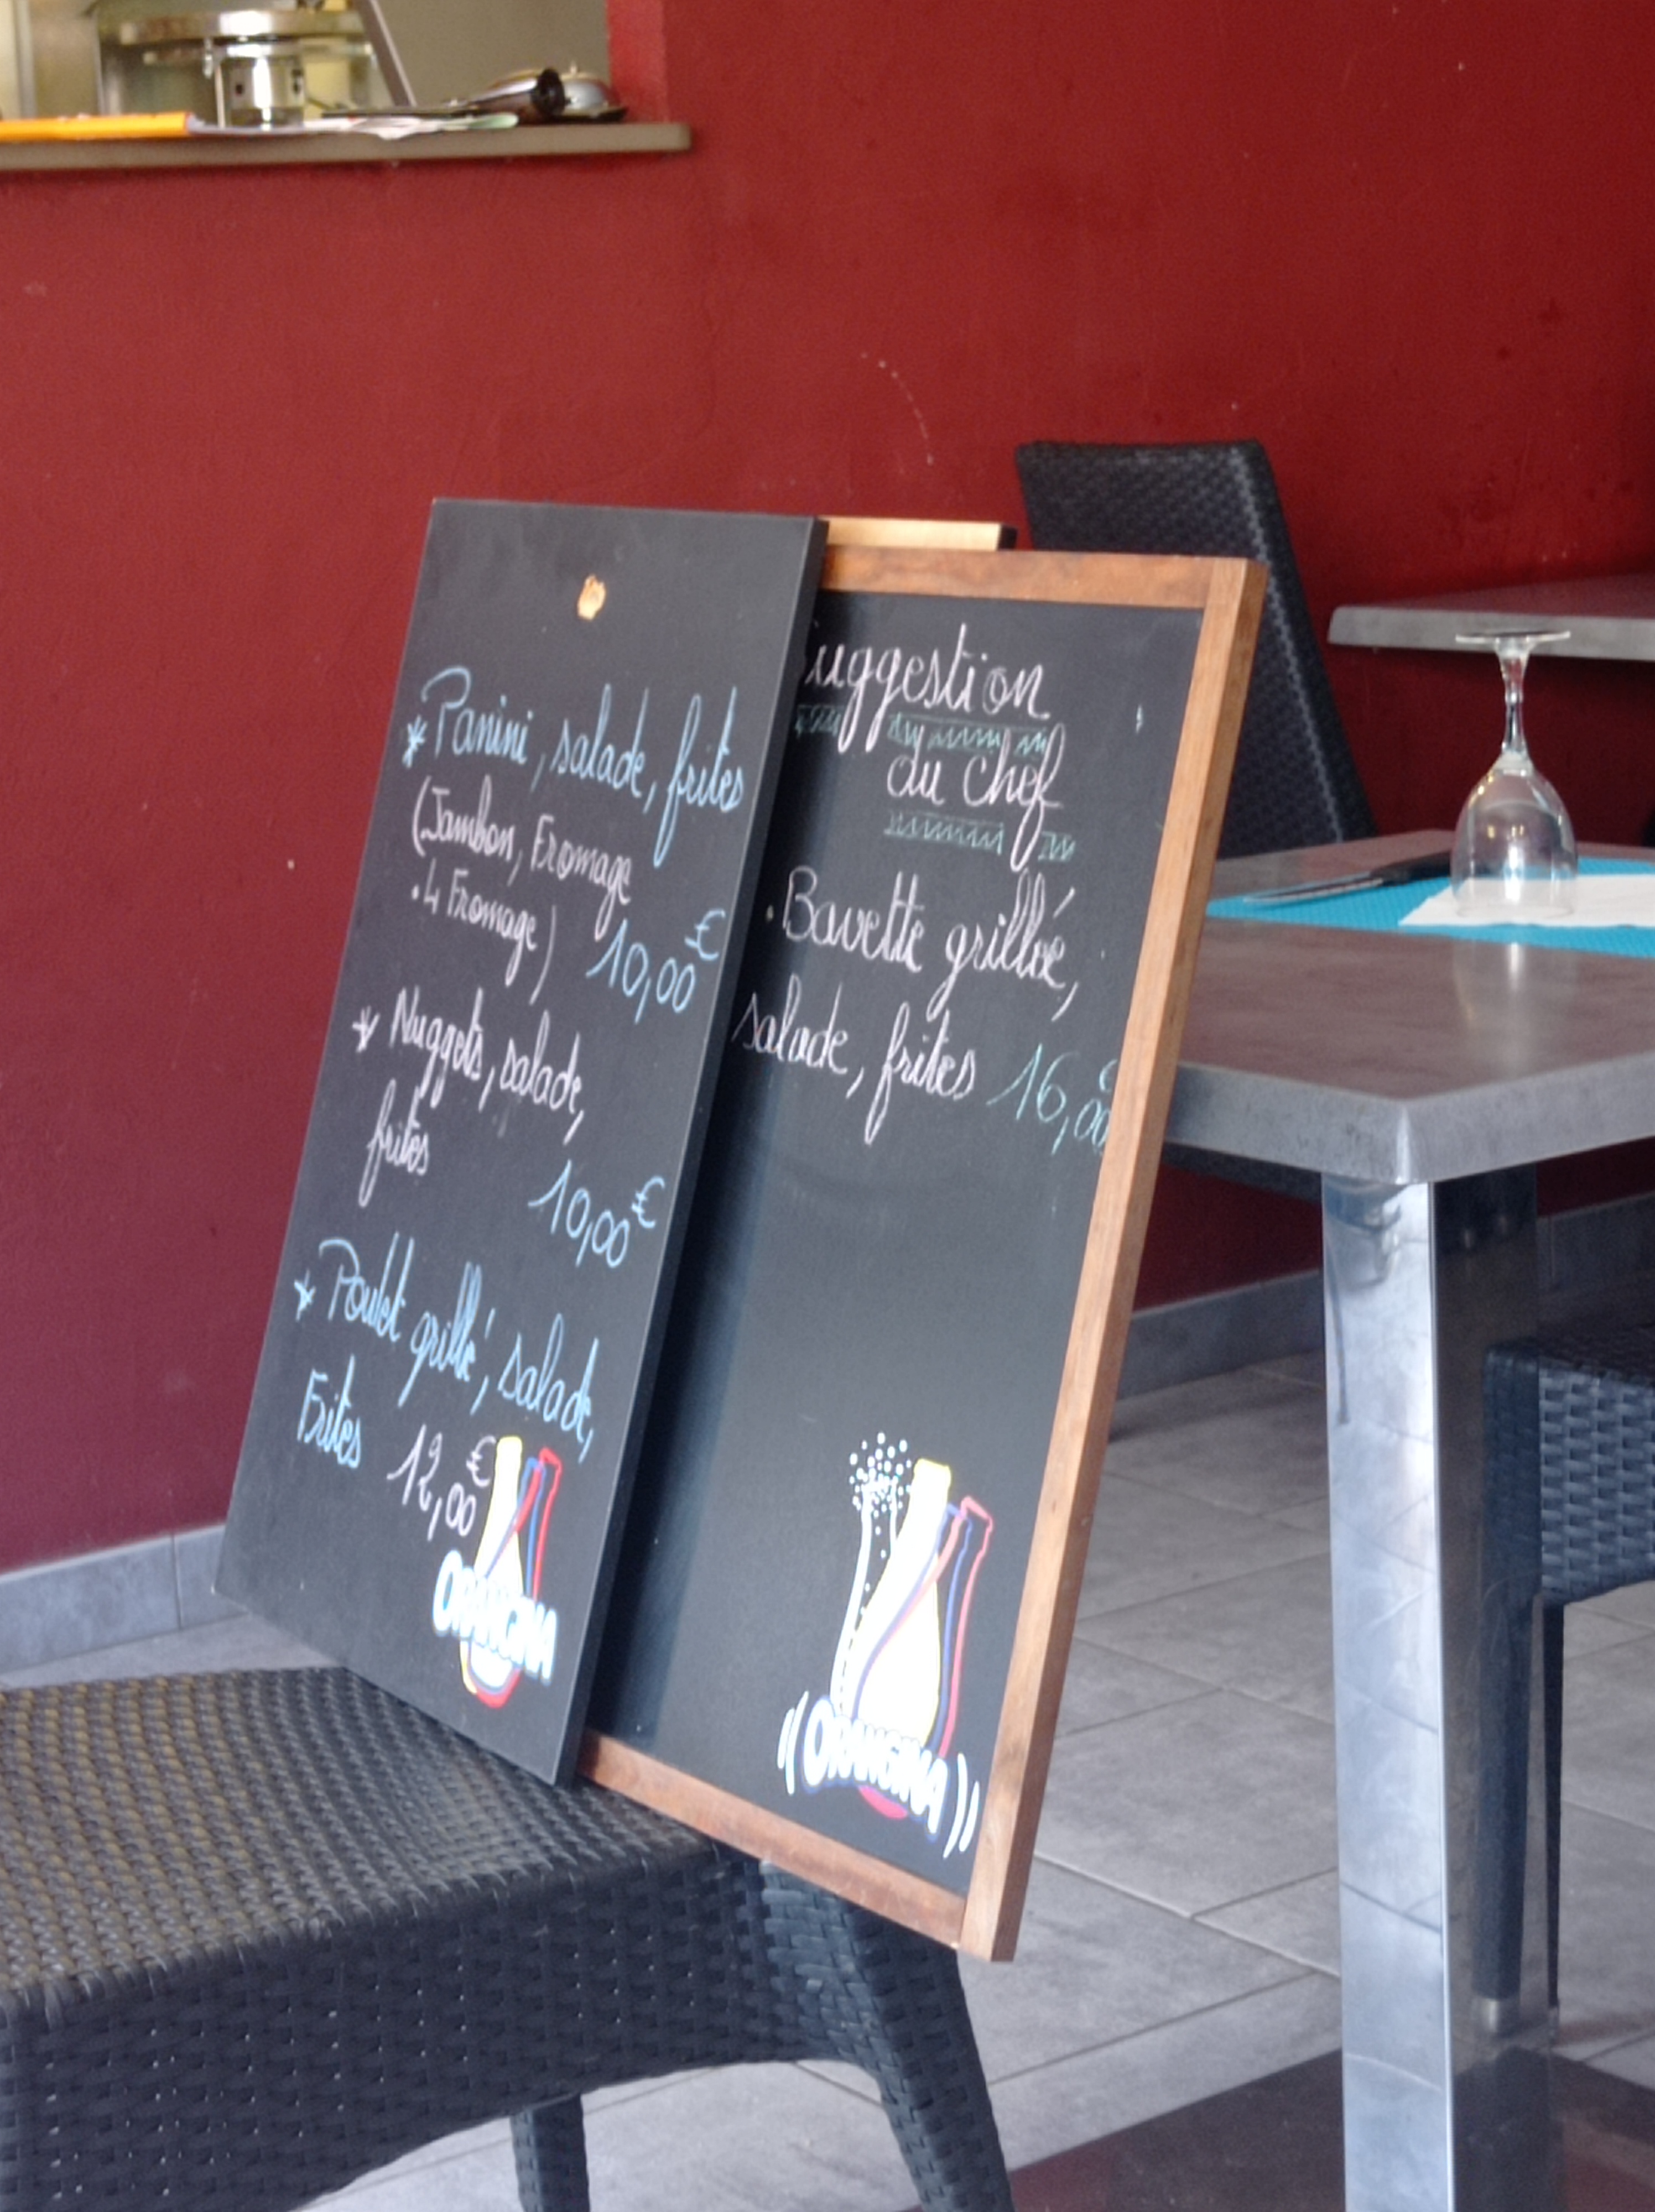 * Panini, salade, frites
(Jambon, Fromage
. 4 Fromage)
10,00€
* Nuggets, salade,
frites
10,00€
* Poulet grillé, salade,
Frites 12,00€
ORANGINA
uggestion
du chef
. Bavette grillée,
salade, frites 16,00€
ORANGINA